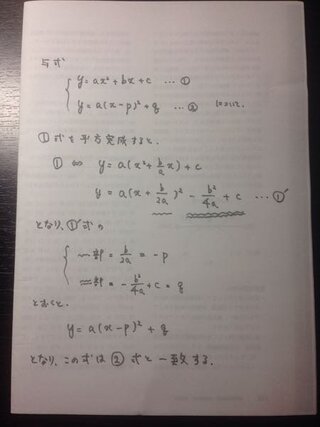 与式
y=ax²+bx+c … ①
y=a(x-p)²+q … ② について。
①式を平方完成すると、
① ⇔ y=a(x²+b/a x)+c
y=a(x+b/2a)² - b²/4a + c … ①'
となり、①'式の
〜部 = b/2a = -p
≈部 = -b²/4a+c = q
とおくと、
y=a(x-p)²+q
となり、この式は②式と一致する。